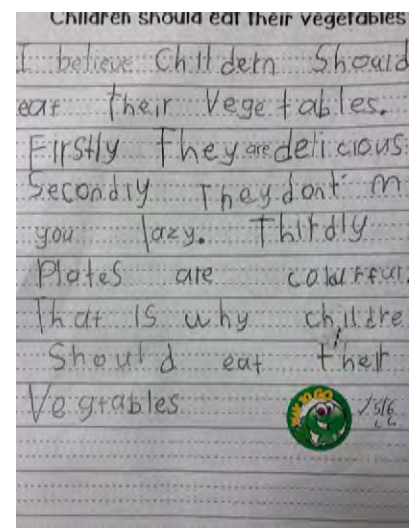 Children should eat their vegetables
I believe Childern Should
eat their Vegetables.
Firstly They are delicious
Secondly They dont m
you lazy. Thirdly
Plates are colourful.
That is why childre
Should eat their
Vegtables
WAY TO GO